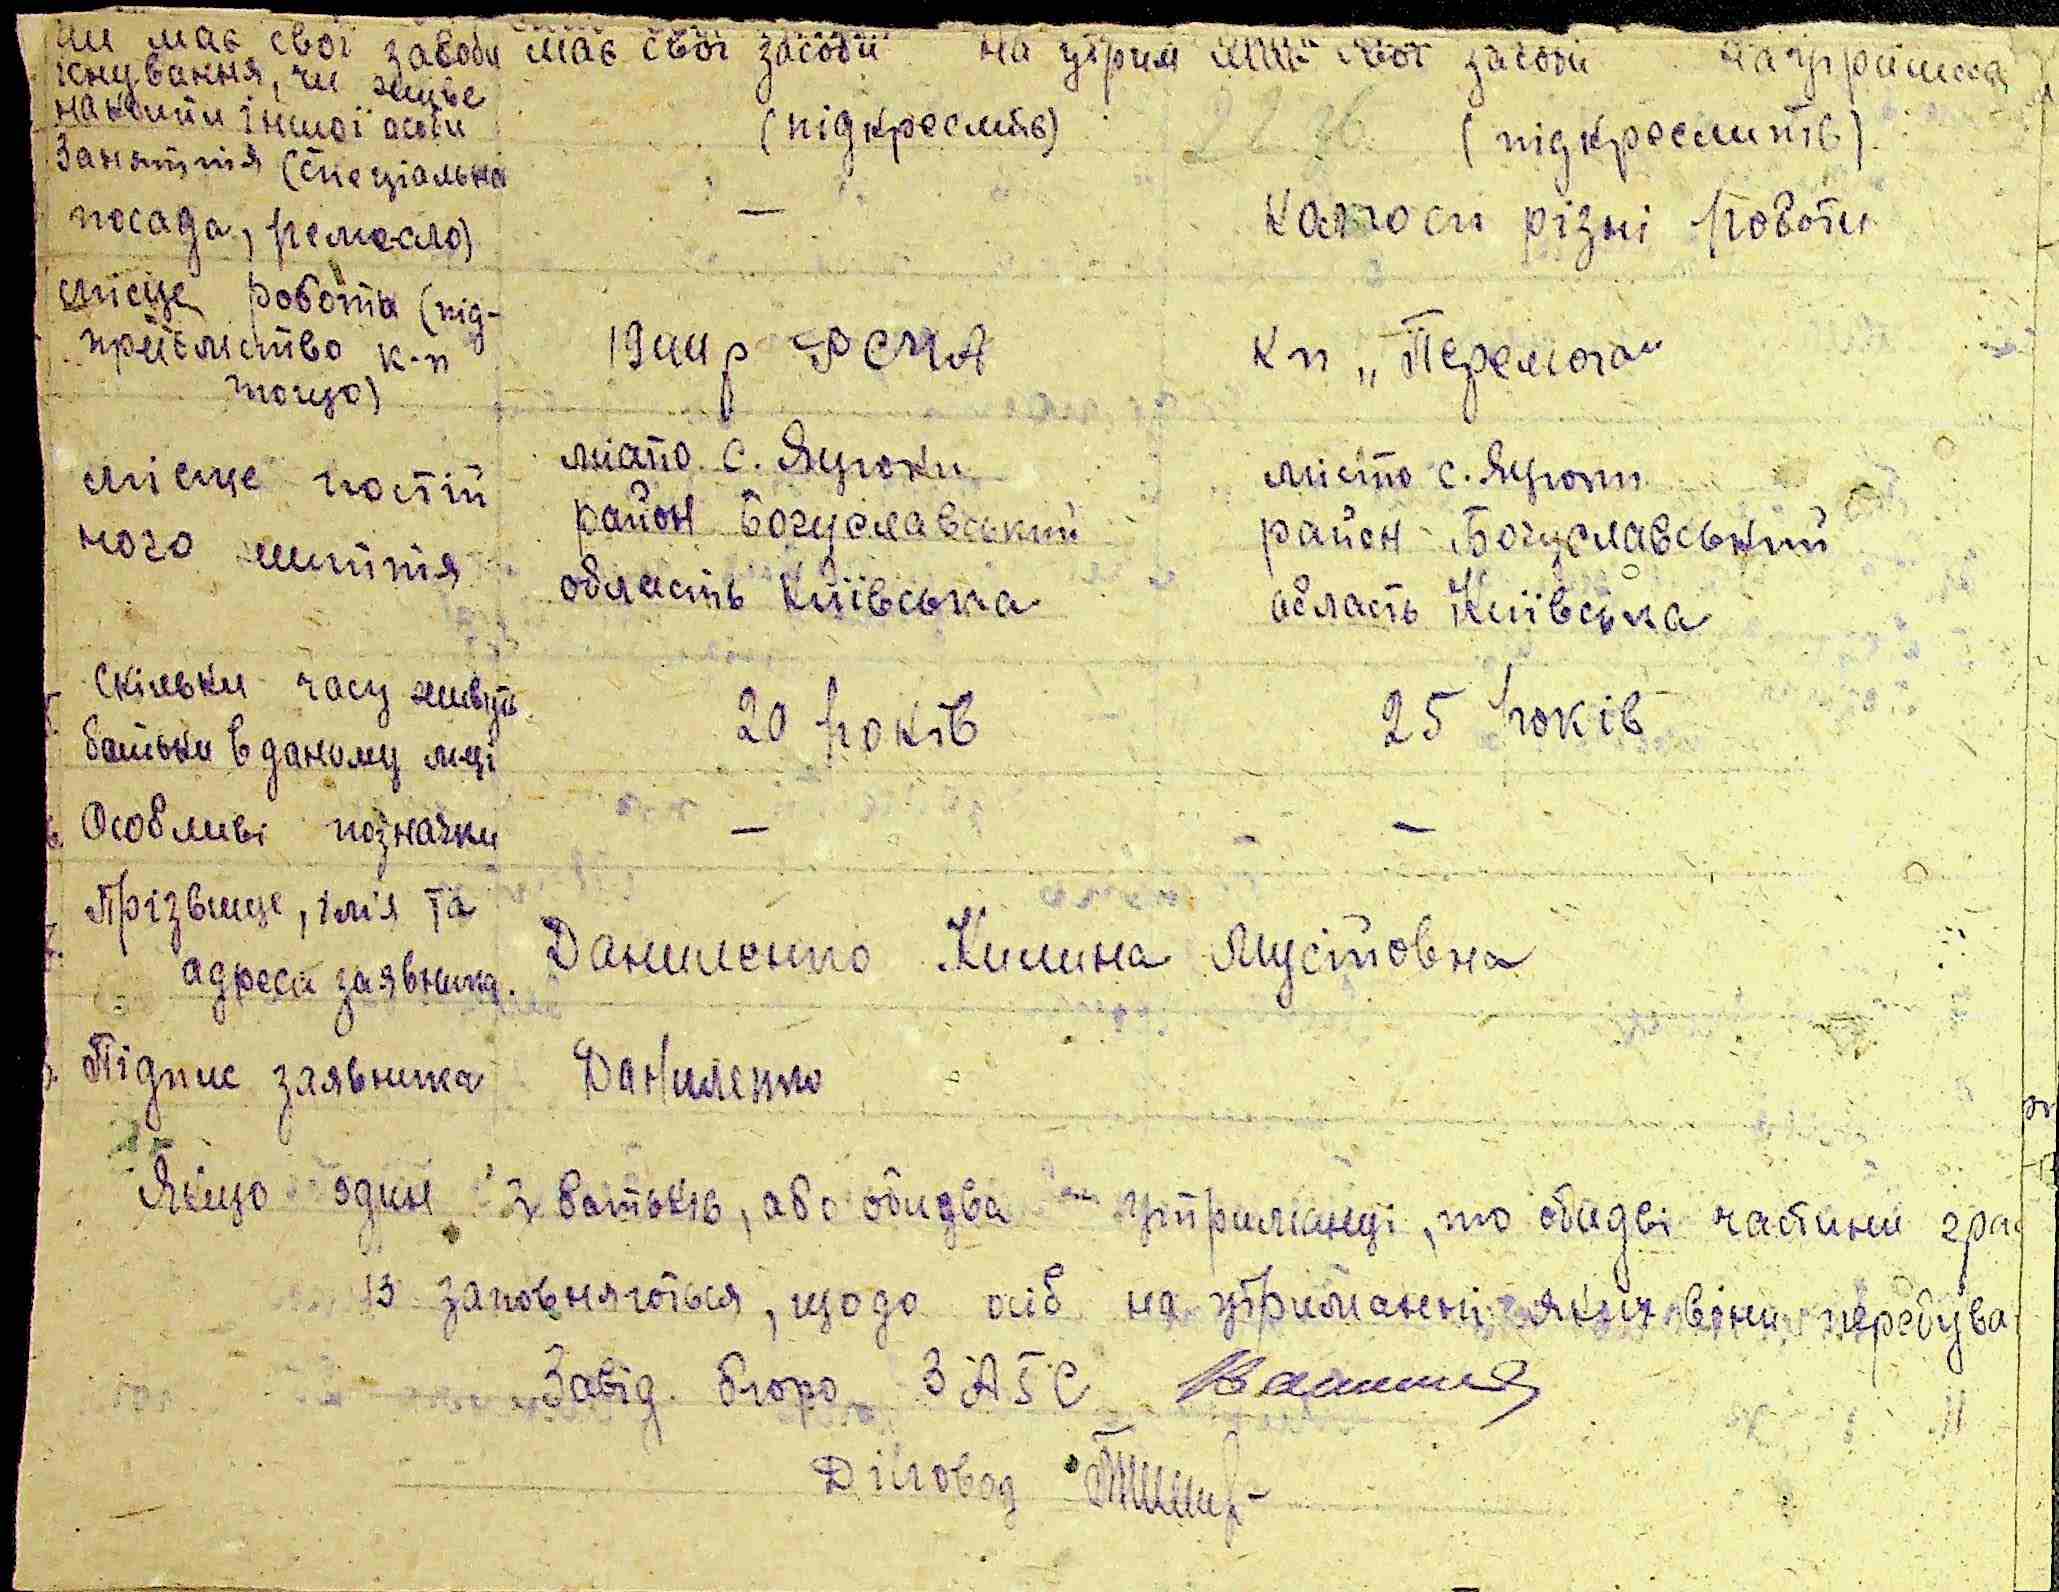 чи має свої засоби має свої засоби на утрим має свої засоби на утриман
існування, чи живе
на кошти іншої особи (підкреслить) (підкреслить)
Заняття (спеціальна
посада, ремесло) — колгосп різні роботи
місце роботи (під-
приємство к-п 1944 р РСЧА кп „Перемога"
тощо)
місце постій місто с. Яцюки місто с. Яцюки
ного життя район Богуславський район Богуславський
область Київська область Київська
Скільки часу живуть 20 років 25 років
батьки в даному м-ці
Особливі позначки — —
Прізвище, імія та
адреса заявника. Даниленко Килина Мусіївовна
Підпис заявника Даниленко
Якщо один з батьків, або обидва утриманці, то обидві частини гра
13 заповняються, щодо осіб на утриманні яких вони перебува
Завід. бюро ЗАГС
Діловод